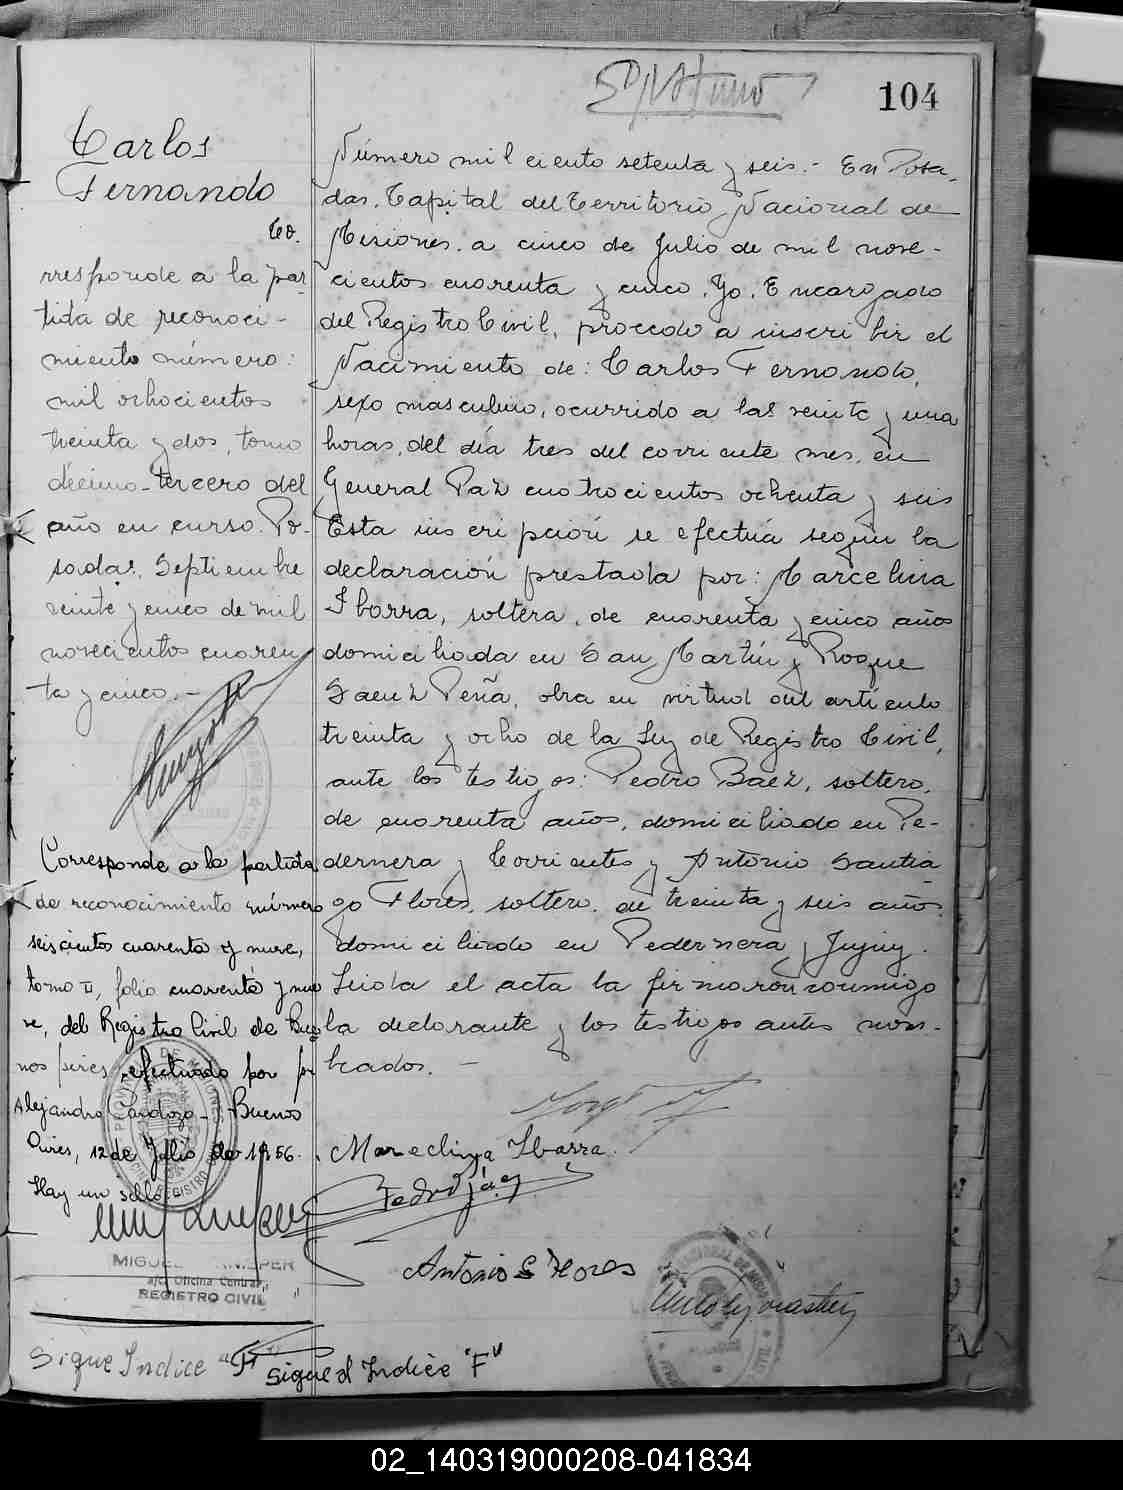 104
Carlos
Fernando
Co.
rresponde a la par
tida de reconoci-
miento número:
mil ochocientos
treinta y dos, tomo
décimo-tercero del
año en curso. Po-
sadas, Septiembre
veinte y cinco de mil
novecientos cuaren
ta y cinco.-
Corresponde a la partida
de reconocimiento número
seiscientos cuarenta y nueve,
tomo II, folio cuarenta y nue
ve, del Registro Civil de Bue
nos Aires, efectuado por
Alejandro Cardozo - Buenos
Aires, 12 de Julio de 1956.
Hay un sello
MIGUEL
a/c Oficina Central
REGISTRO CIVIL
Sigue Indice "F"
Sigue el Indice "F"
Número mil ciento setenta y seis.- En Posa-
das, Capital del Territorio Nacional de
Misiones, a cinco de Julio de mil nove-
cientos cuarenta y cinco, Yo, Encargado
del Registro Civil, procedo a inscribir el
Nacimiento de: Carlos Fernando,
sexo masculino, ocurrido a las veinte y una
horas, del día tres del corriente mes, en
General Paz cuatrocientos ochenta y seis
Esta inscripción se efectúa según la
declaración prestada por: Marcelina
Ibarra, soltera, de cuarenta y cinco años
domiciliada en San Martín y Roque
Saenz Peña, obra en virtud del artículo
treinta y ocho de la Ley de Registro Civil,
ante los testigos: Pedro Baez, soltero,
de cuarenta años, domiciliado en Pe-
dernera y Corrientes y Antonio Santia
go Flores, soltero, de treinta y seis años
domiciliado en Pedernera y Jujuy.
Leída el acta la firmaron conmigo
la declarante y los testigos antes nom-
brados. -
Marcelina Ibarra.
Pedro Báez
Antonio S Flores
02_140319000208-041834